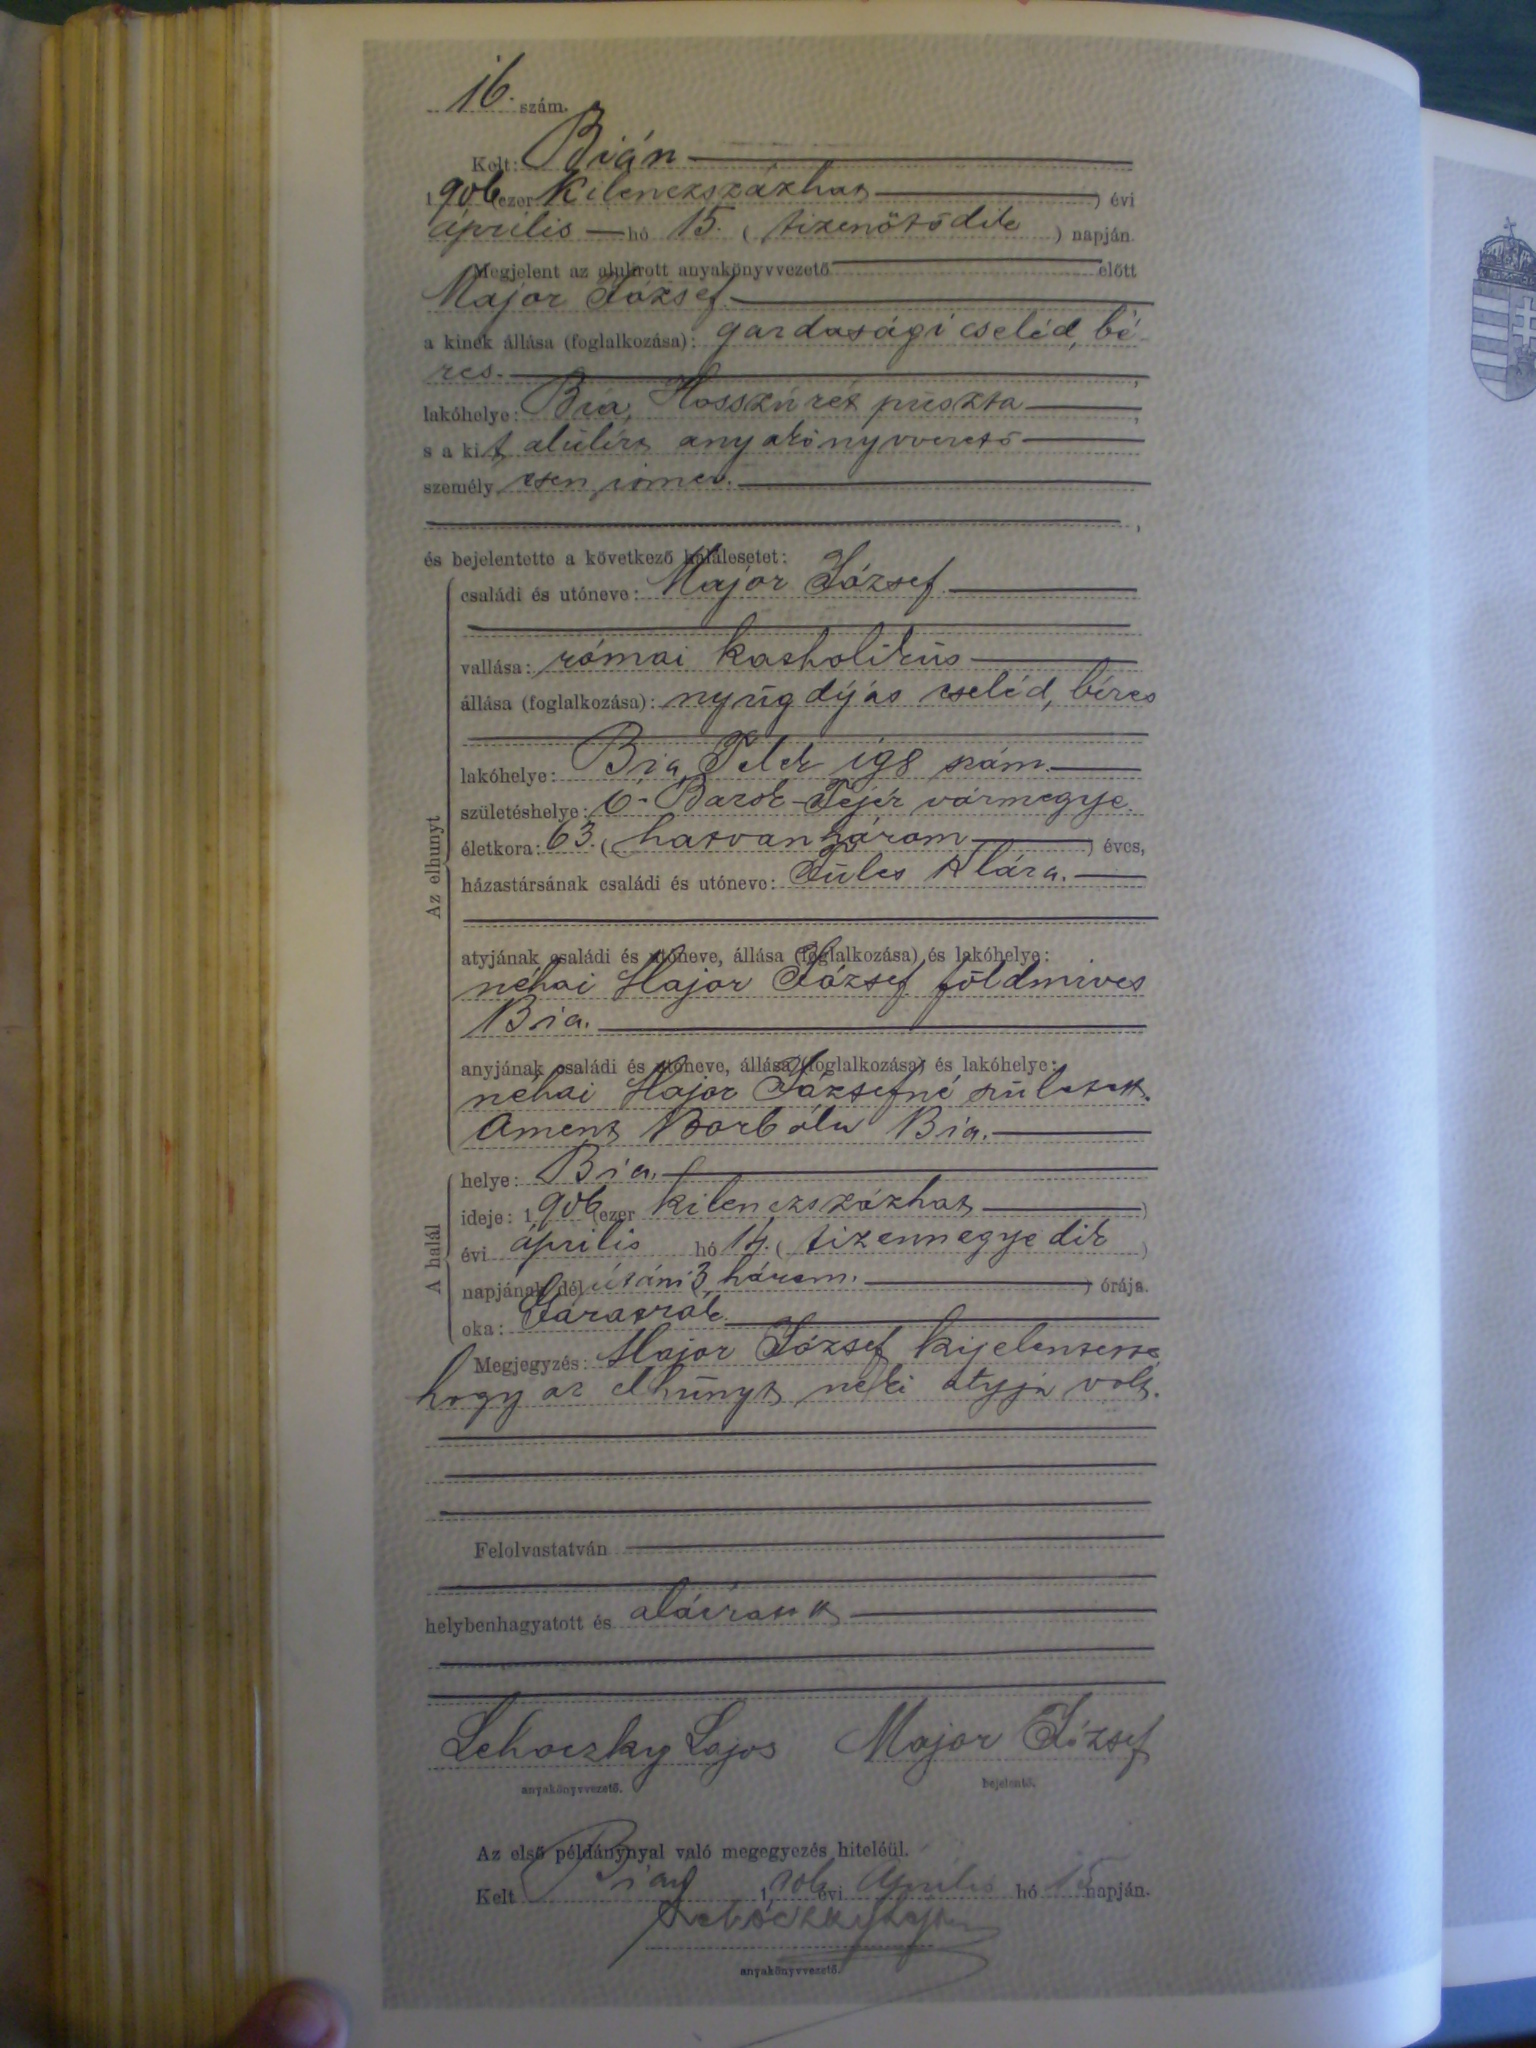 16. szám.
Kelt: Bián
1906 (ezer kilenczszázhat) évi
április hó 15. (tizenötödik) napján.
Megjelent az alulirott anyakönyvvezető előtt
Major József
a kinek állása (foglalkozása): gazdasági cseléd, bé-
res.
lakóhelye: Bia, Hosszúrét puszta,
s a kit alulírt anyakönyvvezető
személyesen ismer.
és bejelentette a következő halálesetet:
Az elhunyt
családi és utóneve: Major József.
vallása: római katholikus
állása (foglalkozása): nyugdíjas cseléd, béres
lakóhelye: Bia, Telek 198 szám.
születéshelye: Ó-Barok Fejér vármegye.
életkora: 63. (hatvanhárom) éves,
házastársának családi és utóneve: Klára.
atyjának családi és utóneve, állása (foglalkozása) és lakóhelye:
néhai Major József földmives
Bia.
anyjának családi és utóneve, állása (foglalkozása) és lakóhelye:
néhai Major Józsefné született
Ament Borbála Bia.
A halál
helye: Bia.
ideje: 1906 (ezer kilenczszázhat)
évi április hó 14. (tizennegyedik)
napjának dél utáni 3 három.) órája.
oka:
Megjegyzés: Major József kijelentette
hogy az elhúnyt neki atyja volt.
Felolvastatván
helybenhagyatott és aláíratott
Lehoczky Lajos Major József
anyakönyvvezető. bejelentő.
Az első példánynyal való megegyezés hiteléül.
Kelt Bián 1906 évi Április hó 15 napján.
Lehoczky Lajos
anyakönyvvezető.